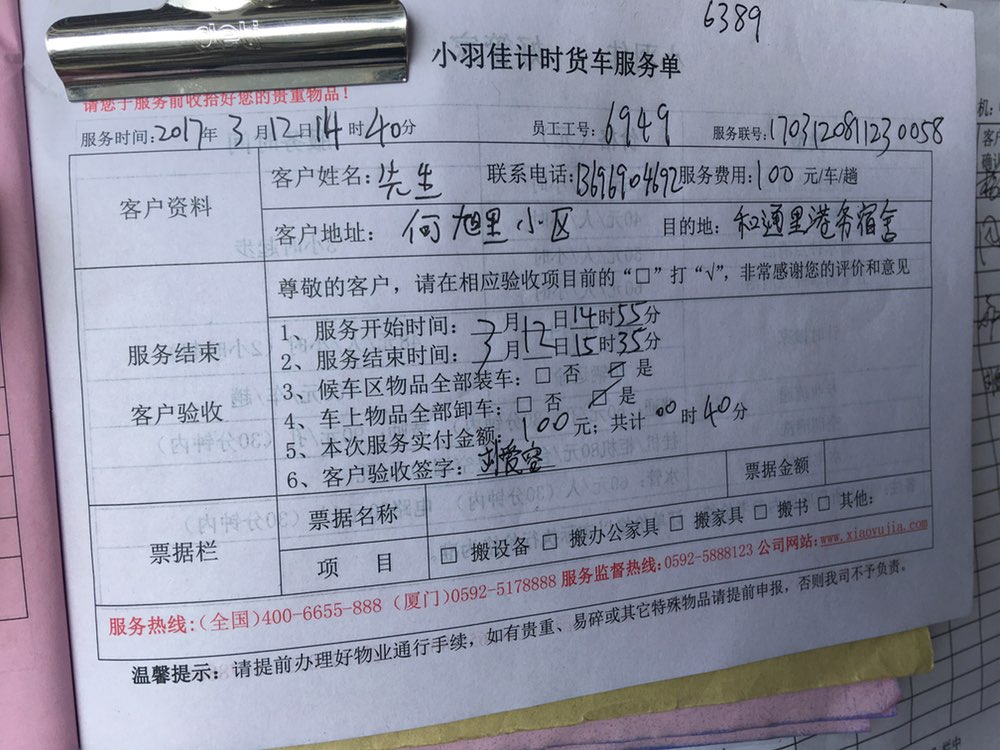 6389
deli
小羽佳计时货车服务单
请您于服务前收拾好您的贵重物品！
服务时间：2017年3月12日14时40分 员工工号：6949 服务联号：1703120811230058
客户资料
客户姓名： 先生 联系电话：13696904692 服务费用：100 元/车/趟
客户地址：何旭里小区 目的地：和通里港务宿舍
尊敬的客户，请在相应验收项目前的“□”打“√”，非常感谢您的评价和意见
服务结束
客户验收
1、服务开始时间：3月12日14时55分
2、服务结束时间：3月12日15时35分
3、候车区物品全部装车：□ 否 ☑ 是
4、车上物品全部卸车：□ 否 ☑ 是
5、本次服务实付金额：100元；共计 00 时 40 分
6、客户验收签字：
票据栏
票据名称 票据金额
项 目 □ 搬设备 □ 搬办公家具 □ 搬家具 □ 搬书 □ 其他：
服务热线：（全国）400-6655-888（厦门）0592-5178888 服务监督热线：0592-5888123 公司网站：www.xiaoyujia.com
温馨提示：请提前办理好物业通行手续，如有贵重、易碎或其它特殊物品请提前申报，否则我司不予负责。